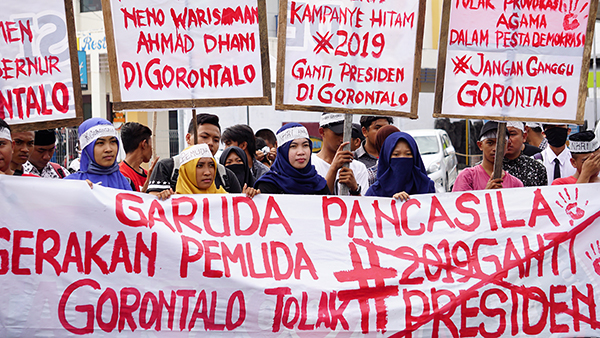 MEN
BERNUR
NTALO
NENO WARISMAN
AHMAD DHANI
DI GORONTALO
KAMPANYE HITAM
#2019
GANTI PRESIDEN
DI GORONTALO
TOLAK PROVOKASI
AGAMA
DALAM PESTA DEMOKRASI
#JANGAN GANGGU
GORONTALO
GARUDA PANCASILA
GERAKAN PEMUDA #2019GANTI
GORONTALO TOLAK PRESIDEN